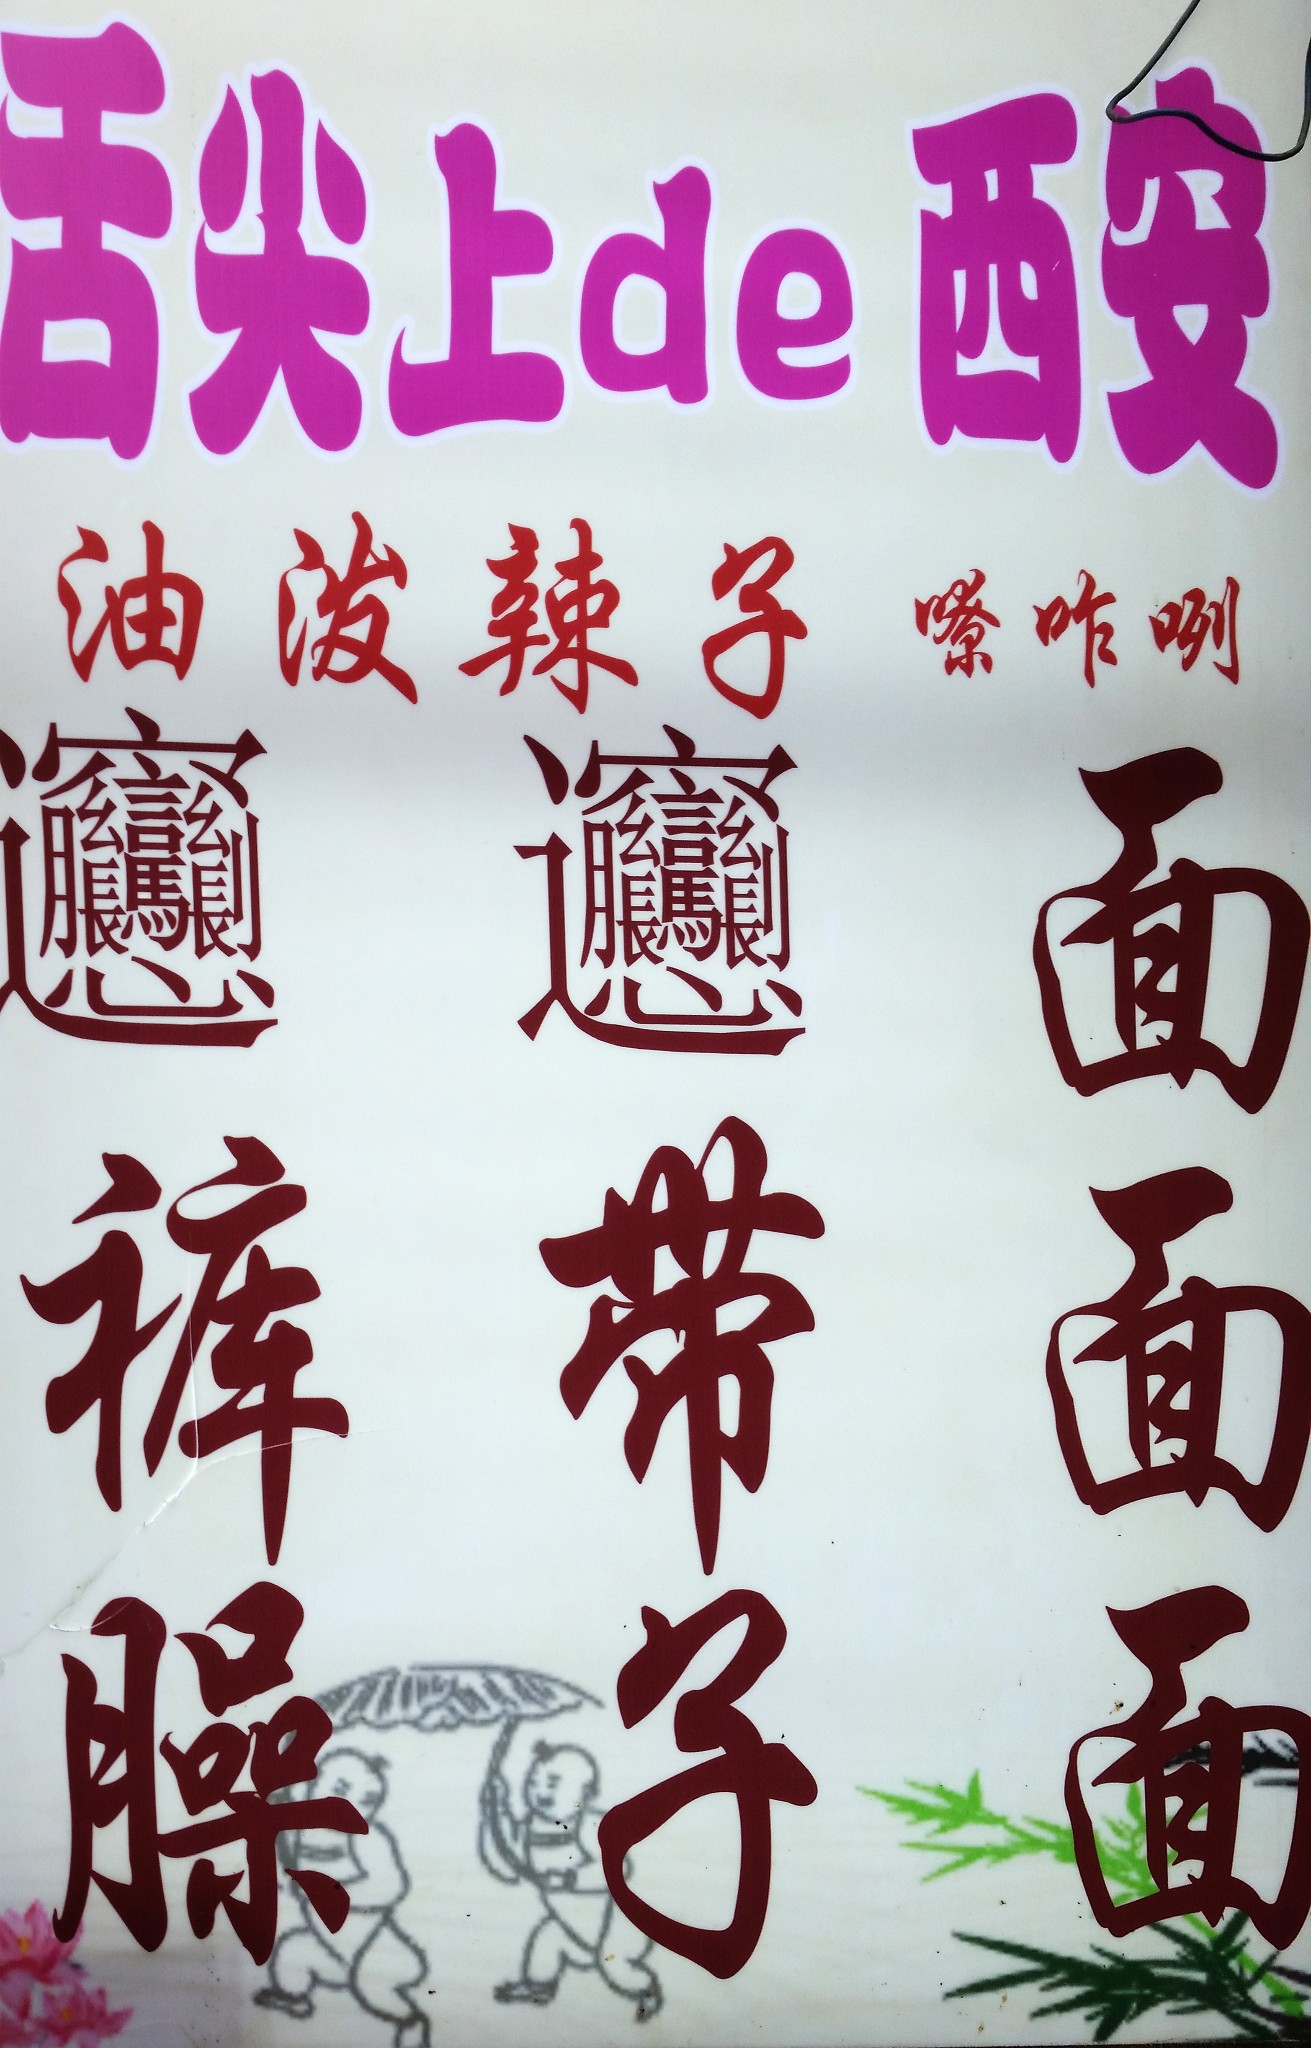 舌尖上de 西安
油泼辣子 嘹咋咧
𰻞𰻞面
裤带面
臊子面